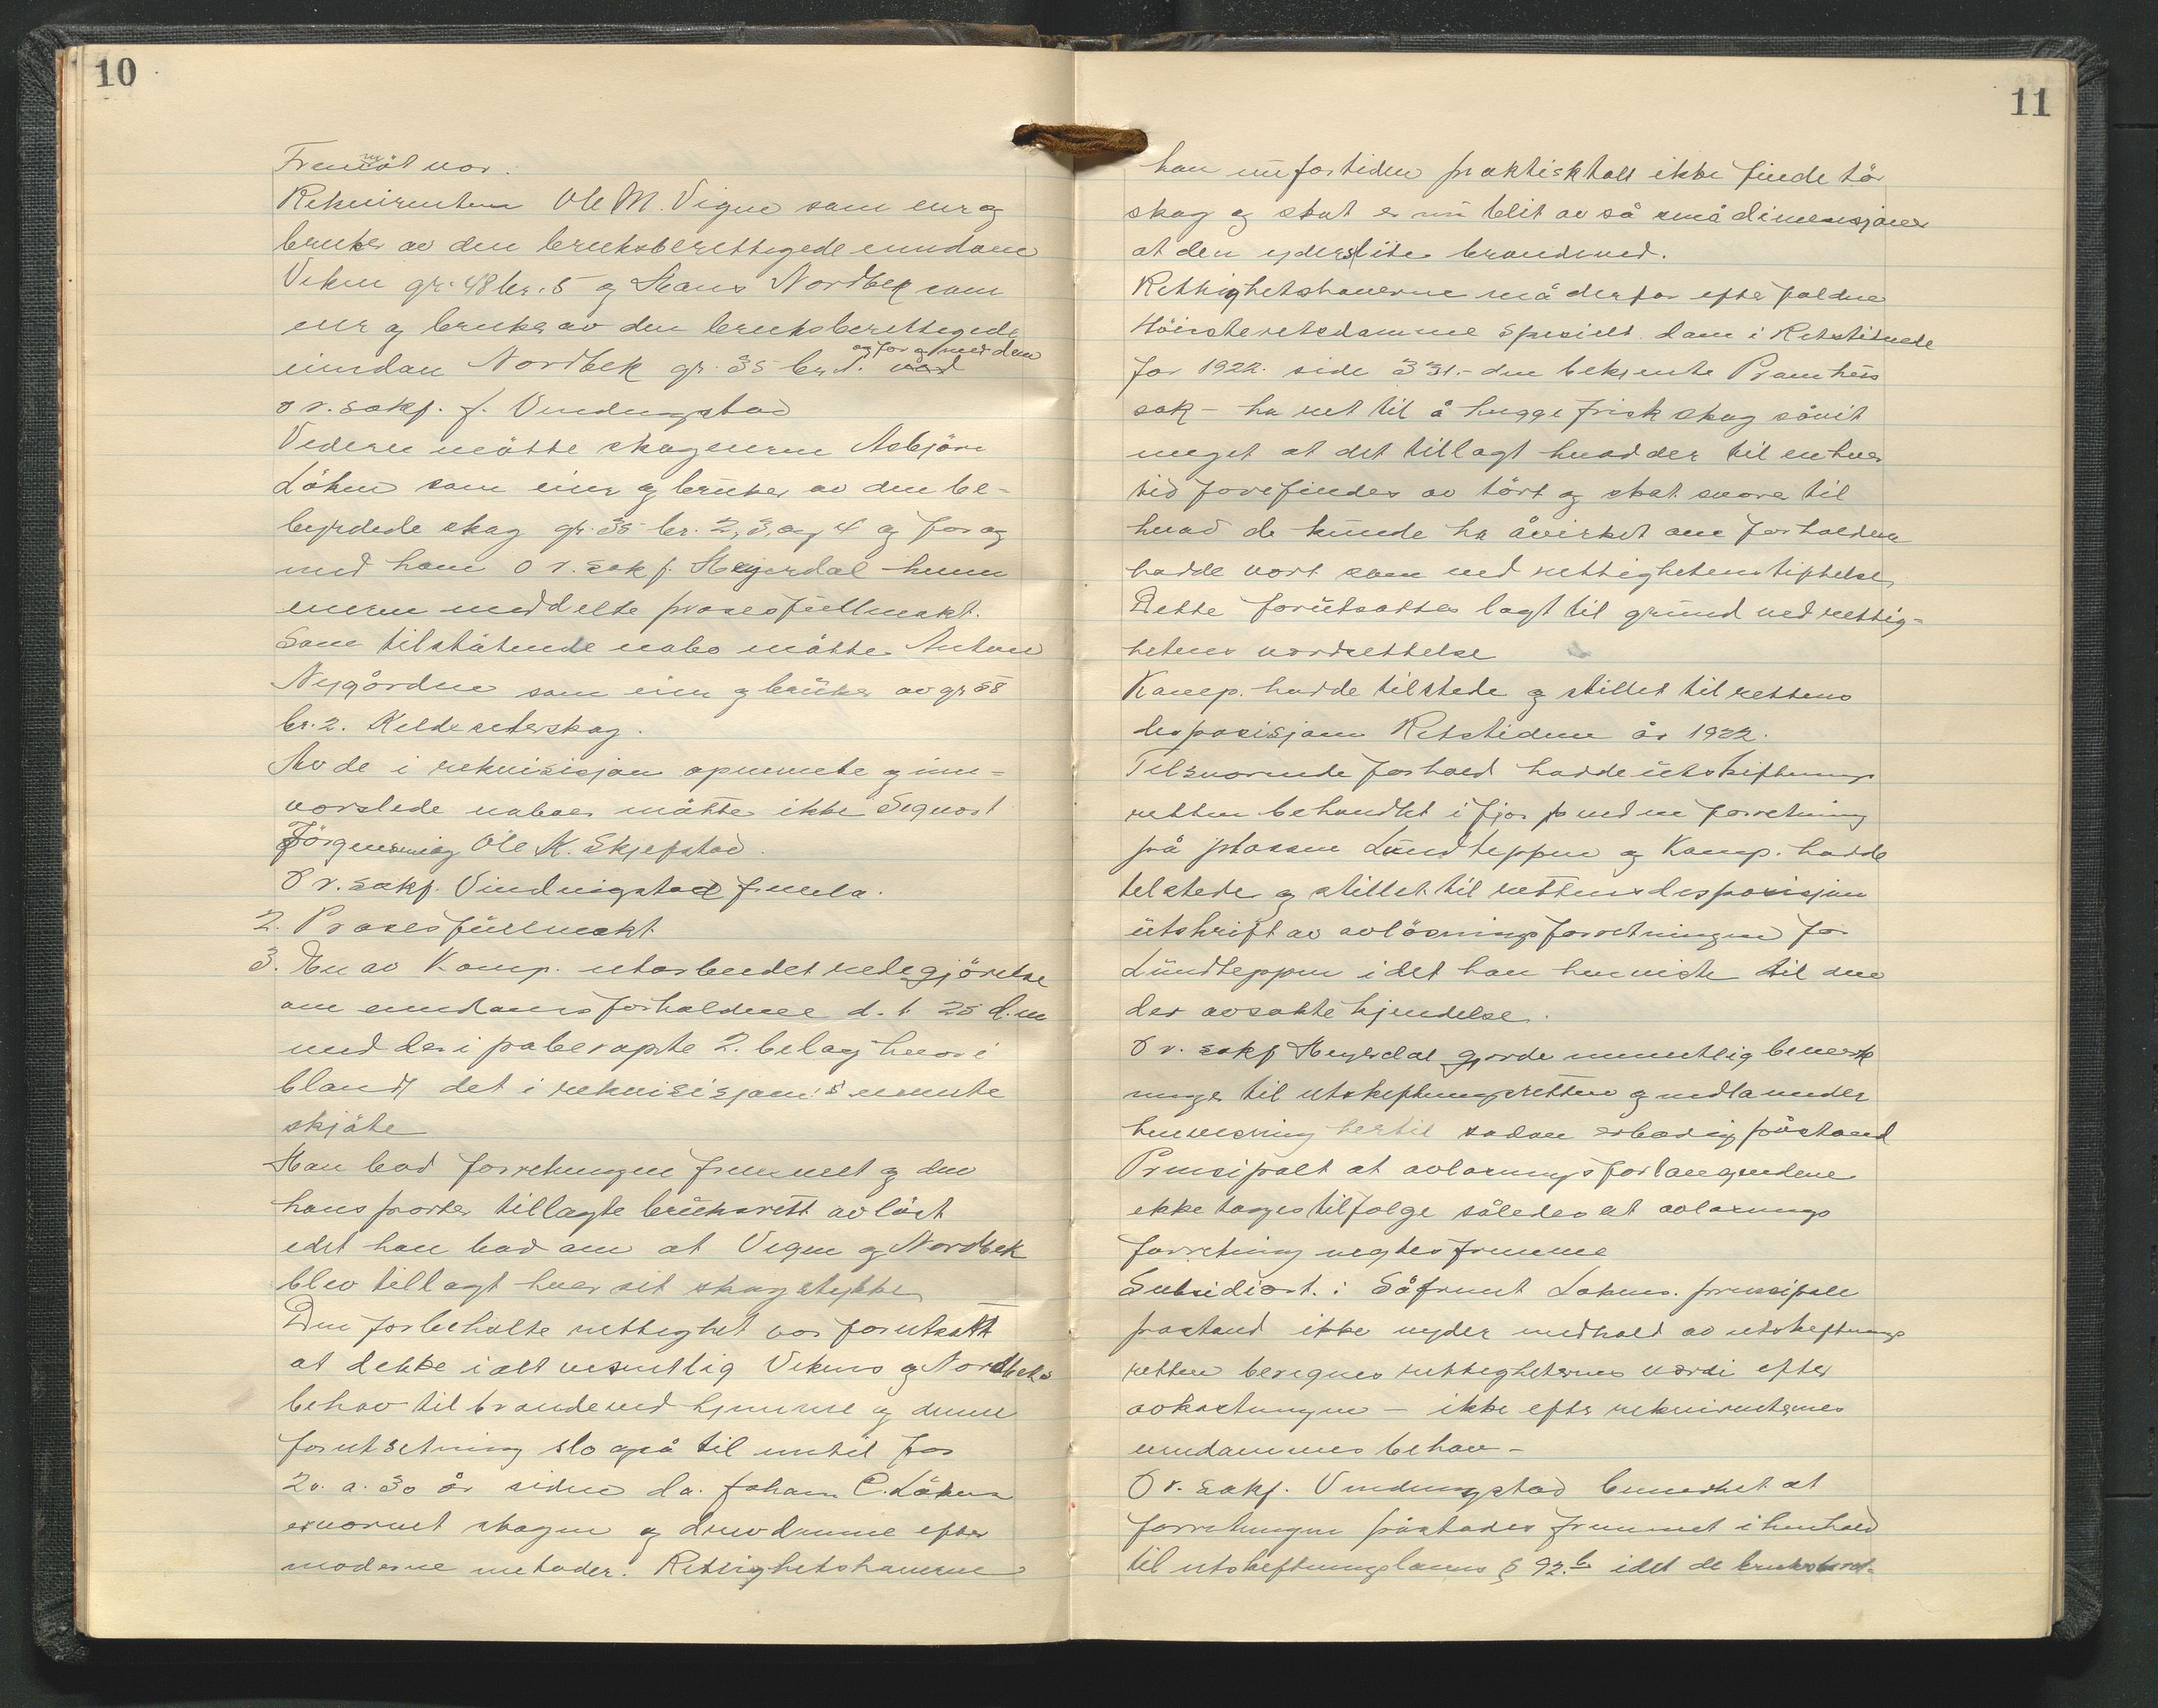 10
Fremmöt var.
Rekvirenten Ole M. Vigen som eier og
bruker av den bruksberettigede eiendom
Veken gr. 48 br. 5 og Hans Nordbek som
eier og bruker av den bruksberettigede
eiendom Nordbek gr. 35 br. 1. og for og med dem
o r. sakf. J. Vindingstad
Videre mötte skogeieren Asbjörn
Löken som eier og bruker av den be-
byrdede skog gr. 35 br. 2, 3, og 4 og for og
med ham o r. sakf. Heyerdal hvem
eieren meddelte prosesfullmakt.
Som tilstötende nabo mötte Anton
Nygården som eier og bruker av gr 58
br. 2. Kelde seterskog.
Av de i rekvisisjon opnevnte og inn-
varslede naboer mötte ikke Seqvart
Jörgensen og Ole K. Skjefstad.
O r. sakf. Vindingstad fremla.
2. Prosesfullmakt
3. En av Komp. utarbeidet redegjörelse
om eiendomsforholdene d. t. 25 d.m
med der i paberopte 2. belag hvor i
blandt det i rekvisisjonen's nevnte
skjöte
Han bad forretningen fremmet og den
hans parter tillagte bruksrett avlöst
idet han bad om at Vegen og Nordbek
blev tillagt hver sit skogstykke
Den forbeholte rettighet var forutsatt
at dekke i alt vesentlig Vekens og Nordbeks
behov til brandeved hjemme og denne
forutsetning slo også til inntil for
20. a. 30 år siden da. Johan C. Löken
ervervet skogen og drev denne efter
moderne metoder. Rettighetshaverne
11
kan nu for tiden praktisktalt ikke finde tör
skog og skat er nu blit av så små dimensjoner
at den yder slite brandeved.
Rettighetshaverne må derfor efter faldne
Höiesteretsdomme spesielt dom i Retstidende
for 1922. side 331.- den bekjente Pramhus
sak - ha ret til å hugge frisk skog såvit
meget at det tillagt hvad der til enhver
tid forefindes av tört og skat svare til
hvad de kunde ha åvirket om forholdene
hadde vært som ved rettighetens stiftelse
Dette forutsattes lagt til grund ved rettig-
hetens værdsettelse
Komp. hadde tilstede og stillet til rettens
desposisjon Retstidene år 1922.
Tilsvarende forhold hadde utskiftnings
retten behandlet i fjor ved en forretning
på plassen Lundteppen og Komp. hadde
tilstede og stillet til rettens desposisjon
utskrift av avlösningsforretningen for
Lundteppen idet han henviste til den
der avsakte kjendelse.
O r. sakf Heyerdal gjorde muntlig bemerk
ninger til utskiftningsretten og nedla under
henvisning hertil sådan erbarig påstand
Prinsipalt at avlösningsforlangendene
ikke tages tilfölge således at avlösnings
forretning negtes fremme
Subsidiært. : Såfremt Lökens. prinsipale
påstand ikke nyder medhold av utskiftnings
retten beregnes rettigheternes værdi efter
avkastningen - ikke efter rekvirenternes
eiendommes behov -
O r. sakf. Vindingstad bemerket at
forretningen påstades fremmet i henhold
til utskiftningslovens § 92.b idet de bruksberet-